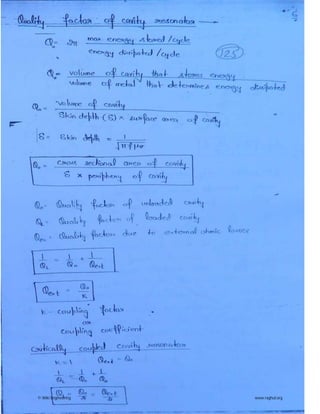 Quality factor of cavity resonator
Q = 2π max energy stored / cycle
energy dissipated / cycle
125
Q = volume of cavity that stores energy
volume of metal that determines energy dissipated
Q₀ = volume of cavity
Skin depth (δ) × surface area of cavity
δ = Skin depth = 1
√πfμσ
Q₀ = cross sectional area of cavity
δ × periphery of cavity
Q₀ = Quality factor of unloaded cavity
QL = Quality factor of loaded cavity
Qext = Quality factor due to external ohmic losses
1/QL = 1/Q₀ + 1/Qext
Qext = Q₀/K
K = coupling factor
or
coupling coefficient
Critically coupled cavity resonator
K = 1 Qext = Q₀
1/QL = 1/Q₀ + 1/Q₀
QL = Q₀/2 = Qext/2
www.raghul.org